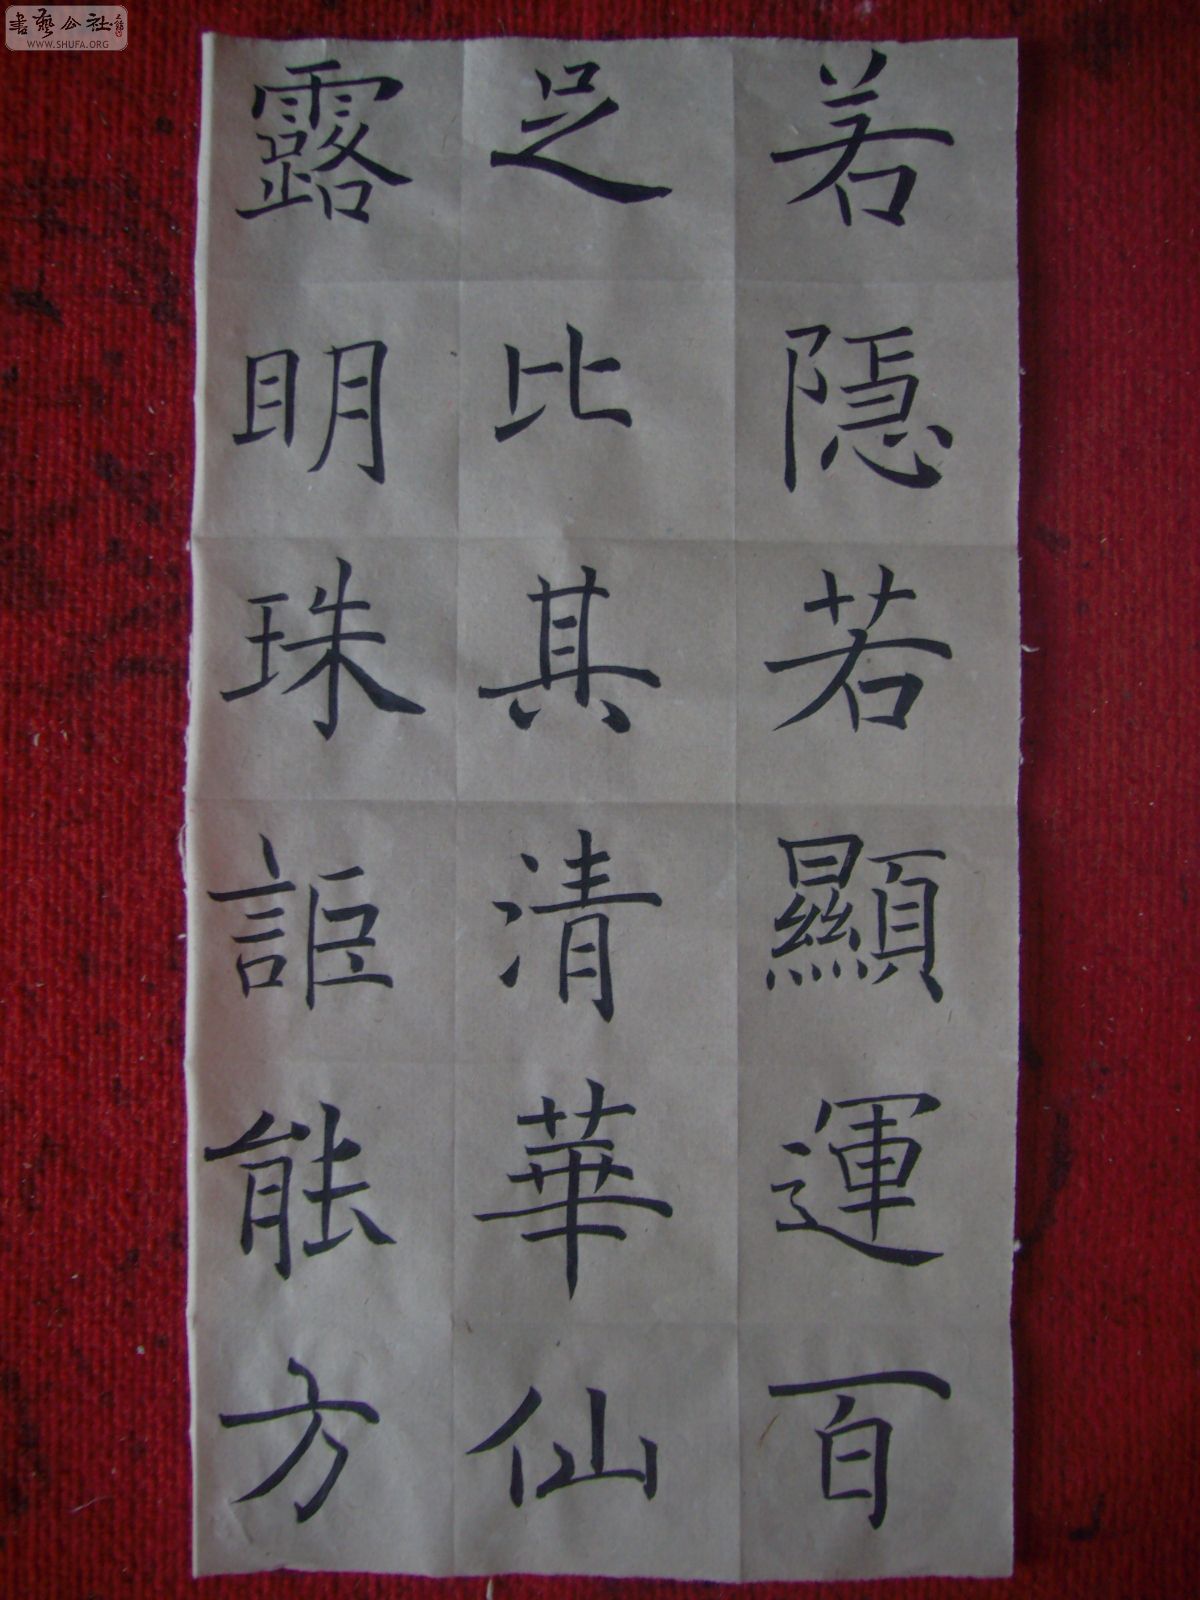 若隱若顯運百
足比其清華仙
露明珠詎能方
書藝公社
WWW.SHUFA.ORG